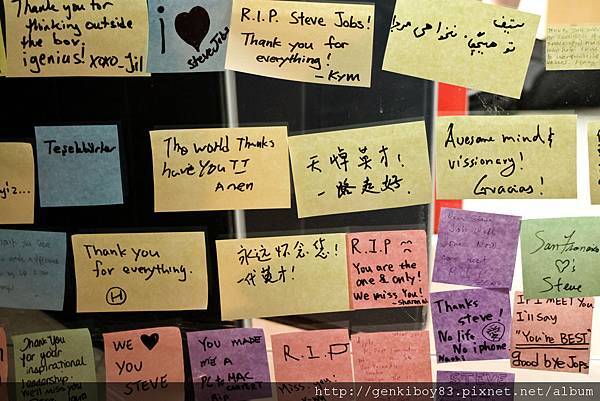 Thank you for
thinking outside
the box
igenius!
XOXO_Jil
i ♥
Steve Jobs
R.I.P. Steve Jobs!
Thank you for
everything!
- Kym
Teşekkürler
The world Thanks
have You TT
天悼英才!
一路走好.
Awesome mind &
vissionary!
Gracias!
yiz...
Thank you
for everything.
H
永远怀念您!
一代英才!
R.I.P ☹
You are the
one & only!
We miss You!
San Francisco
♡'s
Steve
Thank You
for your
inspirational
leadership.
We'll miss
you
WE ♥
YOU
STEVE
YOU MADE
ME A
PC to MAC
CONVERT
R.I.P
Miss you
Thanks
steve!
No life
No iphone
If I MEET YOU
I'll say
"You're BEST"
good bye Jops
http://genkiboy83.pixnet.net/album